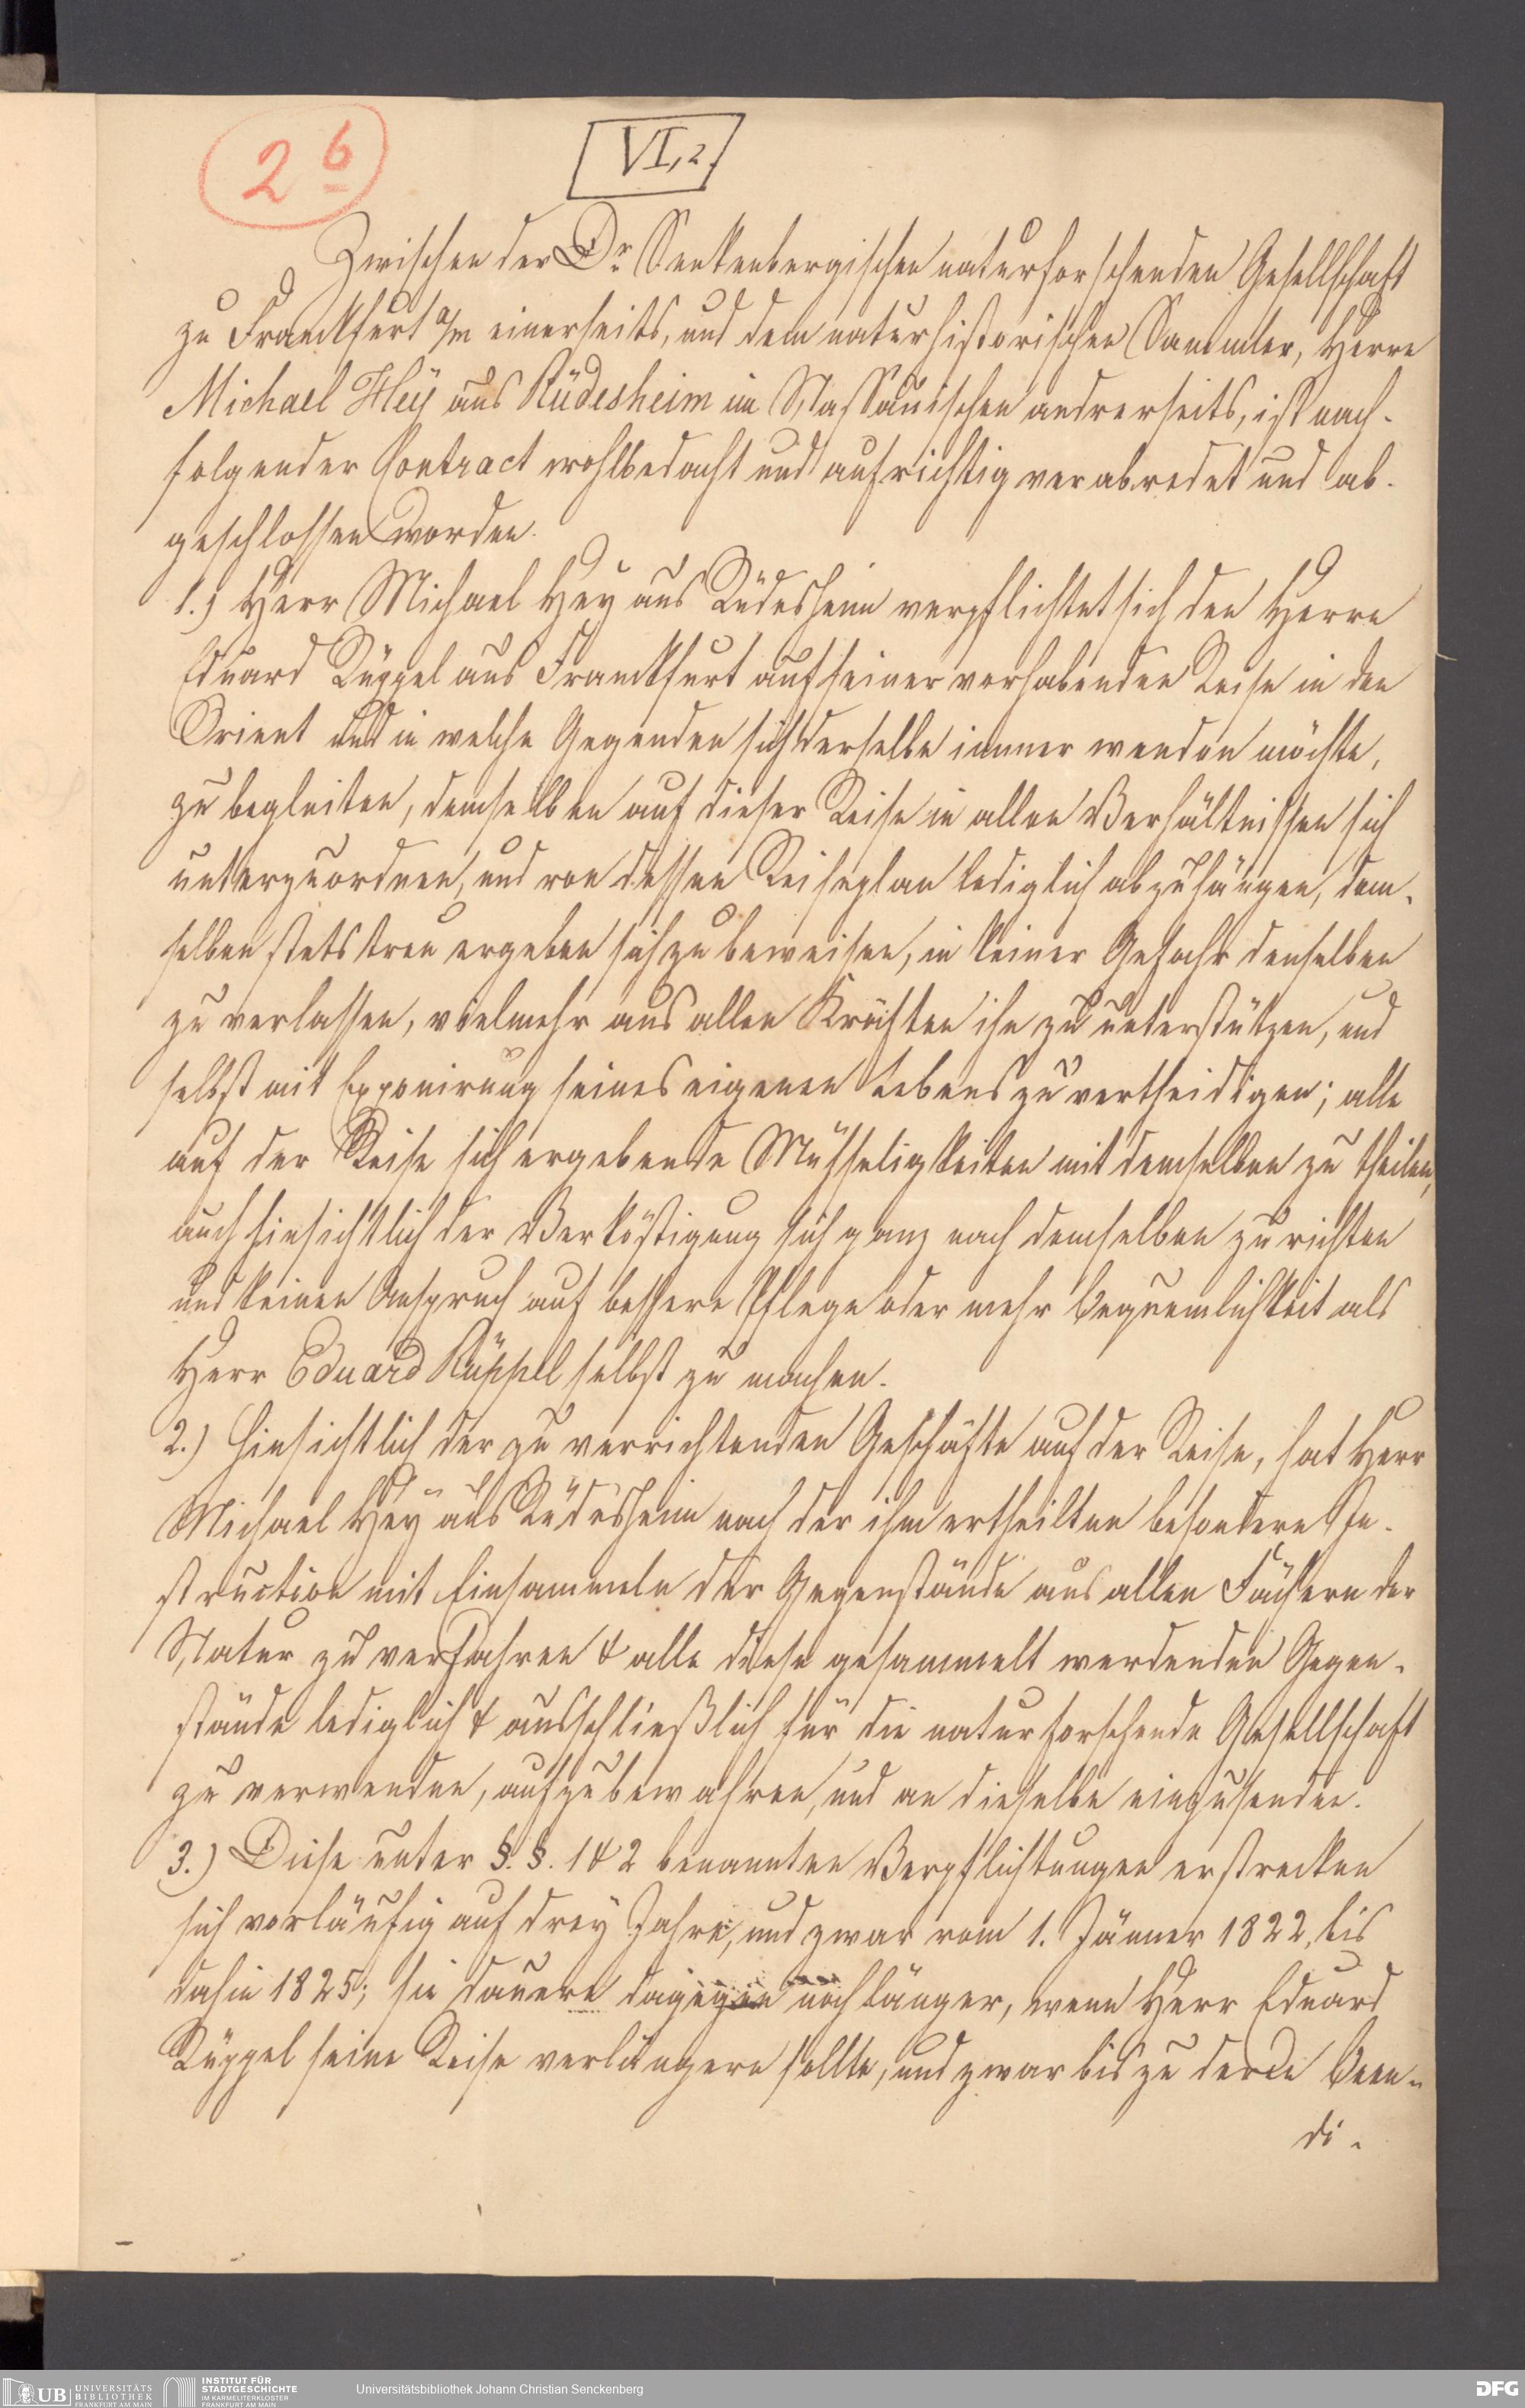 2 6
VI,2.
Zwischen der Dr. Senkenbergischen naturforschenden Gesellschaft
zu Franckfurt a/m einerseits, und dem naturhistorischen Sammler, Herrn
Michael Heÿ aus Rüdesheim im Nassauischen andrerseits, ist nach-
folgender Contract wohlbedacht und aufrichtig verabredet und ab-
geschlossen worden.
1.) Herr Michael Hey aus Rüdesheim verpflichtet sich den Herrn
Eduard Rüppel aus Franckfurt auf seiner vorhabenden Reise in den
Orient und in welche Gegenden sich derselbe immer wenden möchte,
zu begleiten, demselben auf dieser Reise in allen Verhältnissen sich
unterzuordnen, und von dessen Reiseplan lediglich abzuhängen, dem-
selben stets treu ergeben sich zu beweisen, in keiner Gefahr denselben
zu verlassen, vielmehr aus allen Kräften ihn zu unterstützen, und
selbst mit Exponirung seines eigenen Lebens zu vertheidigen; alle
auf der Reise sich ergebende Mühseligkeiten mit demselben zu theilen,
auch hinsichtlich der Verköstigung sich ganz nach demselben zu richten
und keinen Anspruch auf bessere Pflege oder mehr Bequemlichkeit als
Herr Eduard Rüppel selbst zu machen.
2.) Hinsichtlich der zu verrichtenden Geschäfte auf der Reise, hat Herr
Michael Heÿ aus Rüdesheim nach der ihm ertheilten besondern In-
struction mit Einsammeln der Gegenstände aus allen Fächern der
Natur zu verfahren & alle diese gesammelt werdenden Gegen-
stände lediglich & ausschließlich für die naturforschende Gesellschaft
zu verwenden, aufzubewahren, und an dieselbe einzusenden.
3.) Diese unter §. §. 1 & 2 benannten Verpflichtungen erstrecken
sich vorläufig auf dreÿ Jahre, und zwar vom 1. Jänner 1822, bis
dahin 1825; sie dauern dagegen noch länger, wenn Herr Eduard
Rüppel seine Reise verlängern sollte, und zwar bis zu deren Been-
di-
UB UNIVERSITÄTS BIBLIOTHEK FRANKFURT AM MAIN
INSTITUT FÜR STADTGESCHICHTE IM KARMELITERKLOSTER FRANKFURT AM MAIN
Universitätsbibliothek Johann Christian Senckenberg
DFG